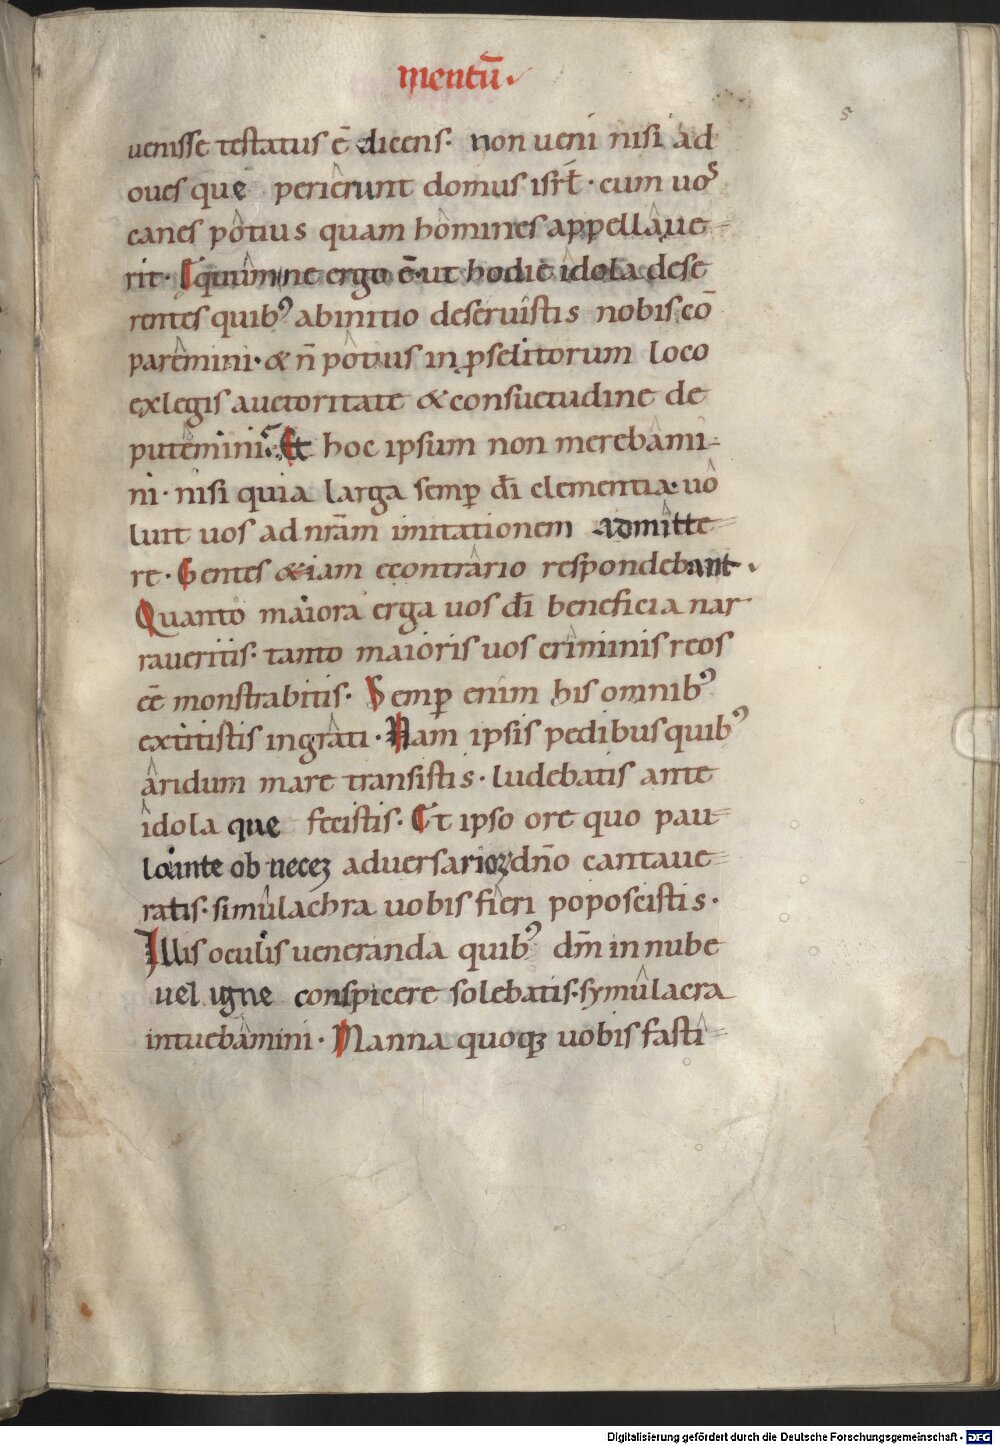 mentū.
5
uenisse testatus ē dicens· non ueni nisi ad
oues que perierunt domus isrł· cum uos
canes potius quam homines appellaue
rit· Iquimine ergo ē ut hodie idola dese
rentes quib; ab initio deseruistis nobis cō
paremini· & ñ potius in pselitorum loco
ex legis auctoritate & consuetudine de
putemini. Et hoc ipsum non merebami-
ni· nisi quia larga semp di clementia· uo
luit uos ad nrām imitationem admitte
re· Gentes &iam econtrario respondebant·
Quanto maiora erga uos di beneficia nar
raueritis· tanto maioris uos criminis reos
eē monstrabitis· Semp enim his omnib;
extitistis ingrati· Nam ipsis pedibus quib;
aridum mare transistis· ludebatis ante
idola que fecistis· Et ipso ore quo pau
loante ob necez aduersarioꝝ dño cantaue
ratis· simulachra uobis fieri poposcistis·
Illis oculis ueneranda quib; dm̄ in nube
uel igne conspicere solebatis· symulacra
intuebamini· Manna quoqz uobis fasti
Digitalisierung gefördert durch die Deutsche Forschungsgemeinschaft - DFG